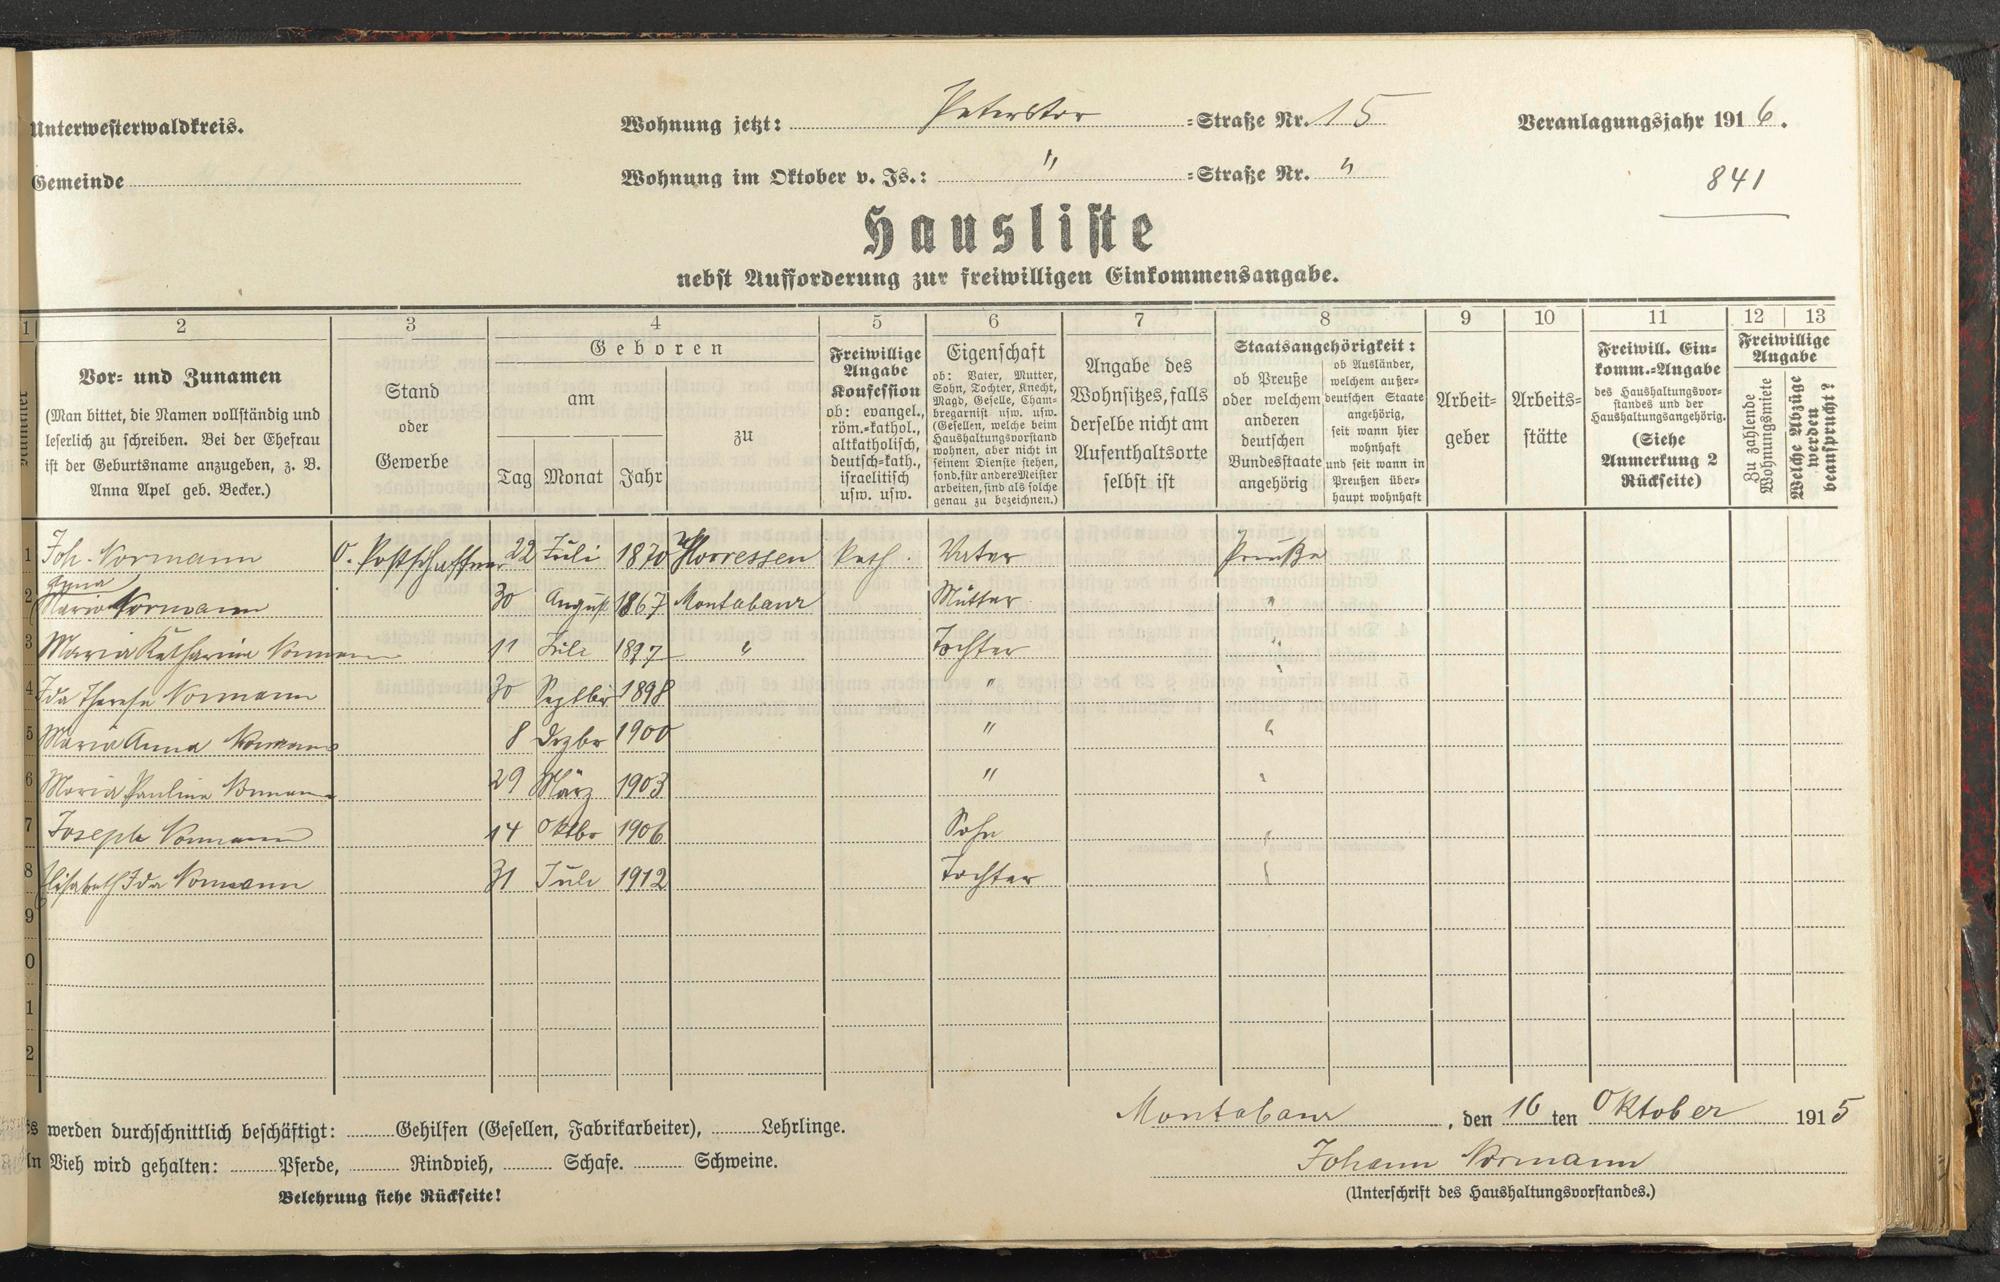 Unterwesterwaldkreis.
Wohnung jetzt: Peterstor =Straße Nr. 15
Veranlagungsjahr 1916.
Gemeinde
Wohnung im Oktober v. Js.: " =Straße Nr. "
841
Hausliste
nebst Aufforderung zur freiwilligen Einkommensangabe.
1 2 3 4 5 6 7 8 9 10 11 12 13
Nummer
Vor- und Zunamen
(Man bittet, die Namen vollständig und
leserlich zu schreiben. Bei der Ehefrau
ist der Geburtsname anzugeben, z. B.
Anna Apel geb. Becker.)
Stand
oder
Gewerbe
Geboren
am
Tag Monat Jahr
zu
Freiwillige
Angabe
Konfession
ob: evangel.,
röm.=kathol.,
altkatholisch,
deutsch=kath.,
israelitisch
usw. usw.
Eigenschaft
ob: Vater, Mutter,
Sohn, Tochter, Knecht,
Magd, Geselle, Cham-
bregarnist usw. usw.
(Gesellen, welche beim
Haushaltungsvorstand
wohnen, aber nicht in
seinem Dienste stehen,
sond. für andere Meister
arbeiten, sind als solche
genau zu bezeichnen.)
Angabe des
Wohnsitzes, falls
derselbe nicht am
Aufenthaltsorte
selbst ist
Staatsangehörigkeit:
ob Preuße
oder welchem
anderen
deutschen
Bundesstaate
angehörig
ob Ausländer,
welchem außer-
deutschen Staate
angehörig,
seit wann hier
wohnhaft
und seit wann in
Preußen über-
haupt wohnhaft
Arbeit=
geber
Arbeits=
stätte
Freiwill. Ein=
komm.=Angabe
des Haushaltungsvor-
standes und der
Haushaltungsangehörig.
(Siehe
Anmerkung 2
Rückseite)
Freiwillige
Angabe
Zu zahlende
Wohnungsmiete
Welche Abzüge
werden
beansprucht?
1 Joh. Normann O. Postschaffner 22 Juli 1870 Horressen kath. Vater Preuße
Anna
2 Maria Normann 30 August 1867 Montabaur Mutter "
3 Maria Katharina Normann 11 Juli 1897 " Tochter "
4 Ida Theresia Normann 30 Septbr 1898 "
5 Maria Anna Normann 8 Dezbr 1900 " "
6 Maria Paulina Normann 29 März 1903 " "
7 Joseph Normann 14 Oktbr 1906 Sohn "
8 Elisabeth Ida Normann 31 Juli 1912 Tochter "
9
0
1
2
Montabaur, den 16 ten Oktober 1915
Johann Normann
(Unterschrift des Haushaltungsvorstandes.)
s werden durchschnittlich beschäftigt: Gehilfen (Gesellen, Fabrikarbeiter), Lehrlinge.
In Vieh wird gehalten: Pferde, Rindvieh, Schafe. Schweine.
Belehrung siehe Rückseite!